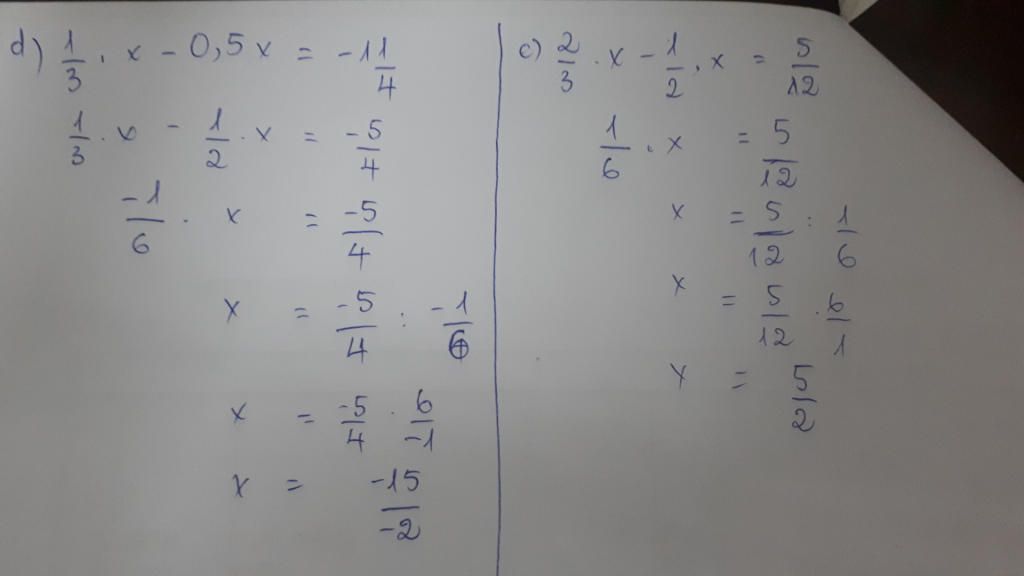 d) 1/3 . x - 0,5x = -1 1/4
1/3 . x - 1/2 . x = -5/4
-1/6 . x = -5/4
x = -5/4 : -1/6
x = -5/4 . 6/-1
x = -15/-2
c) 2/3 . x - 1/2 . x = 5/12
1/6 . x = 5/12
x = 5/12 : 1/6
x = 5/12 . 6/1
x = 5/2